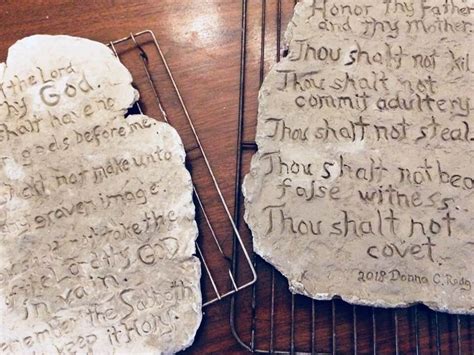 the Lord
hy God.
shalt have no
gods before me.
not make unto
graven image.
not take the
thy GOD
in vain.
emember the
keep it Holy.
Honor thy Father
and thy Mother
Thou shalt not kil
Thou shalt not
commit adultery
Thou shalt not steal.
Thou shalt not bea
false witness.
Thou shalt not
covet.
2018 Donna C. Rodg